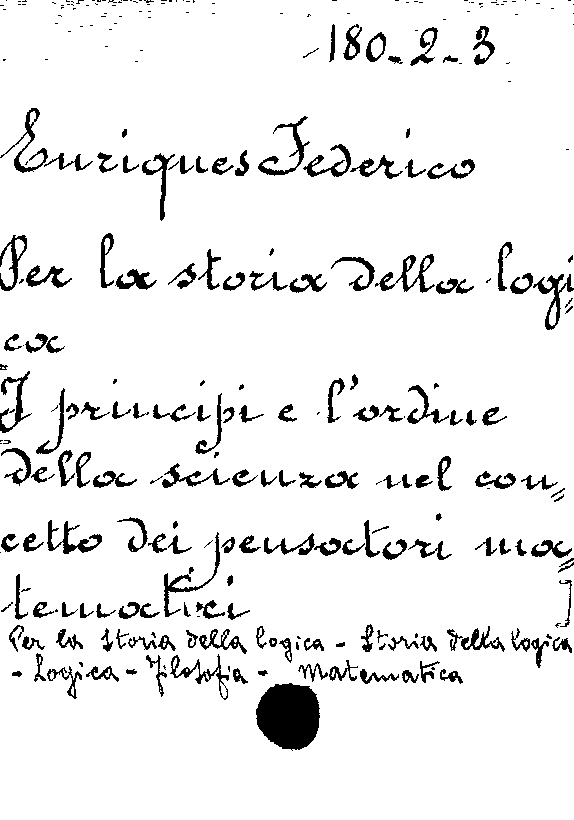 180-2-3
Enriques Federico
Per la storia della logi=
ca
I principi e l'ordine
della scienza nel con=
cetto dei pensatori ma=
tematici ]
Per la Storia della logica - Storia della logica
- Logica - Filosofia - Matematica